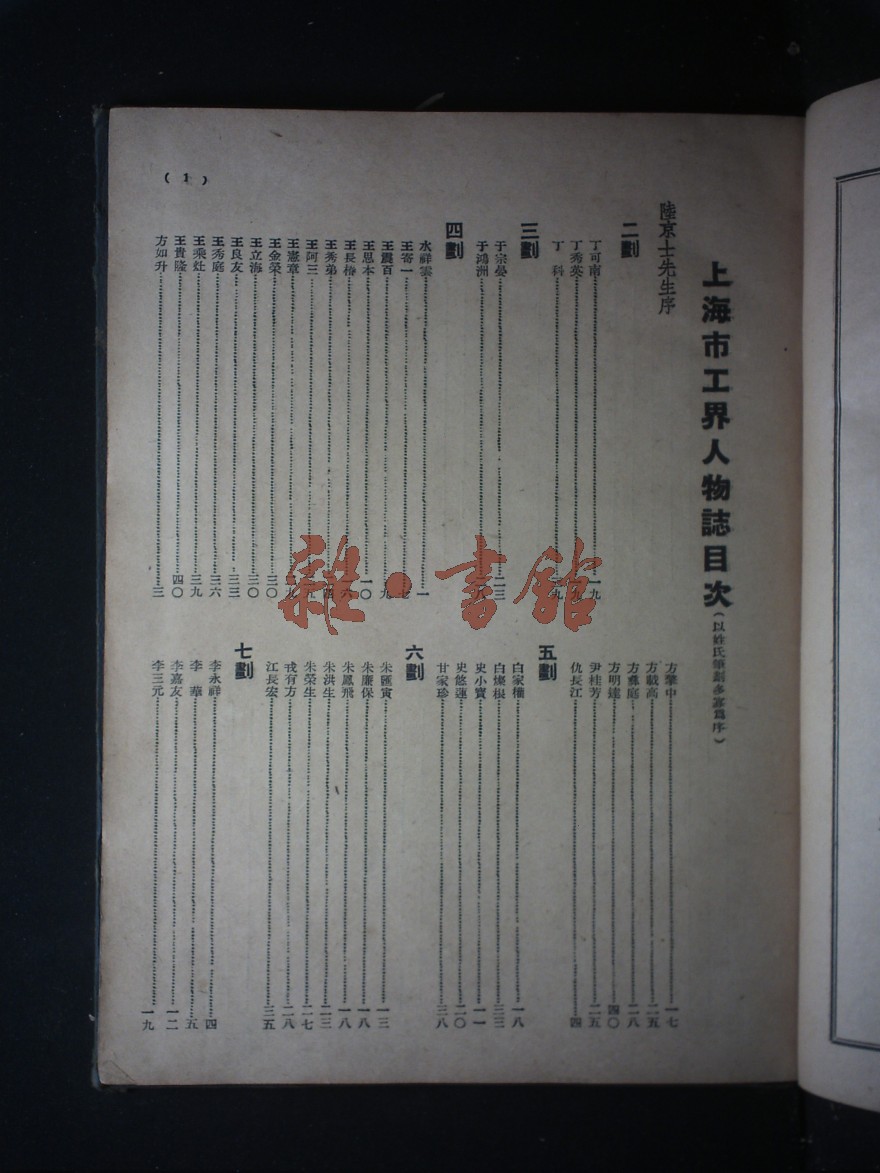 上海市工界人物誌目次(以姓氏筆劃多寡爲序)
陸京士先生序
二劃
丁可南……一九
丁秀英……一九
丁科……一九
三劃
于宗晏……二三
于鴻洲……八
四劃
水祥雲……一
王寄一……七
王震百……九
王思本……一〇
王長椿……六
王秀弟
王阿三……五
王憲章……九
王金榮……三〇
王立海……三〇
王良友……三三
王秀庭……三六
王乘灶……三九
王貴隆……四〇
方如升……三
方擎中……一七
方載高……二五
方彝庭……二八
方明達……四〇
尹桂芳……二五
仇長江……四
五劃
白家種……一八
白煥根……三三
史小寶……一一
史悠運……二〇
甘家珍……三八
六劃
朱匯寅……一三
朱廉保……一八
朱鳳飛……一八
朱洪生……二三
朱榮生……二七
戎有方……二八
江長宏……三五
七劃
李永祥……四
李華……五
李嘉友……一二
李三元……一九
(1)
雜·書館